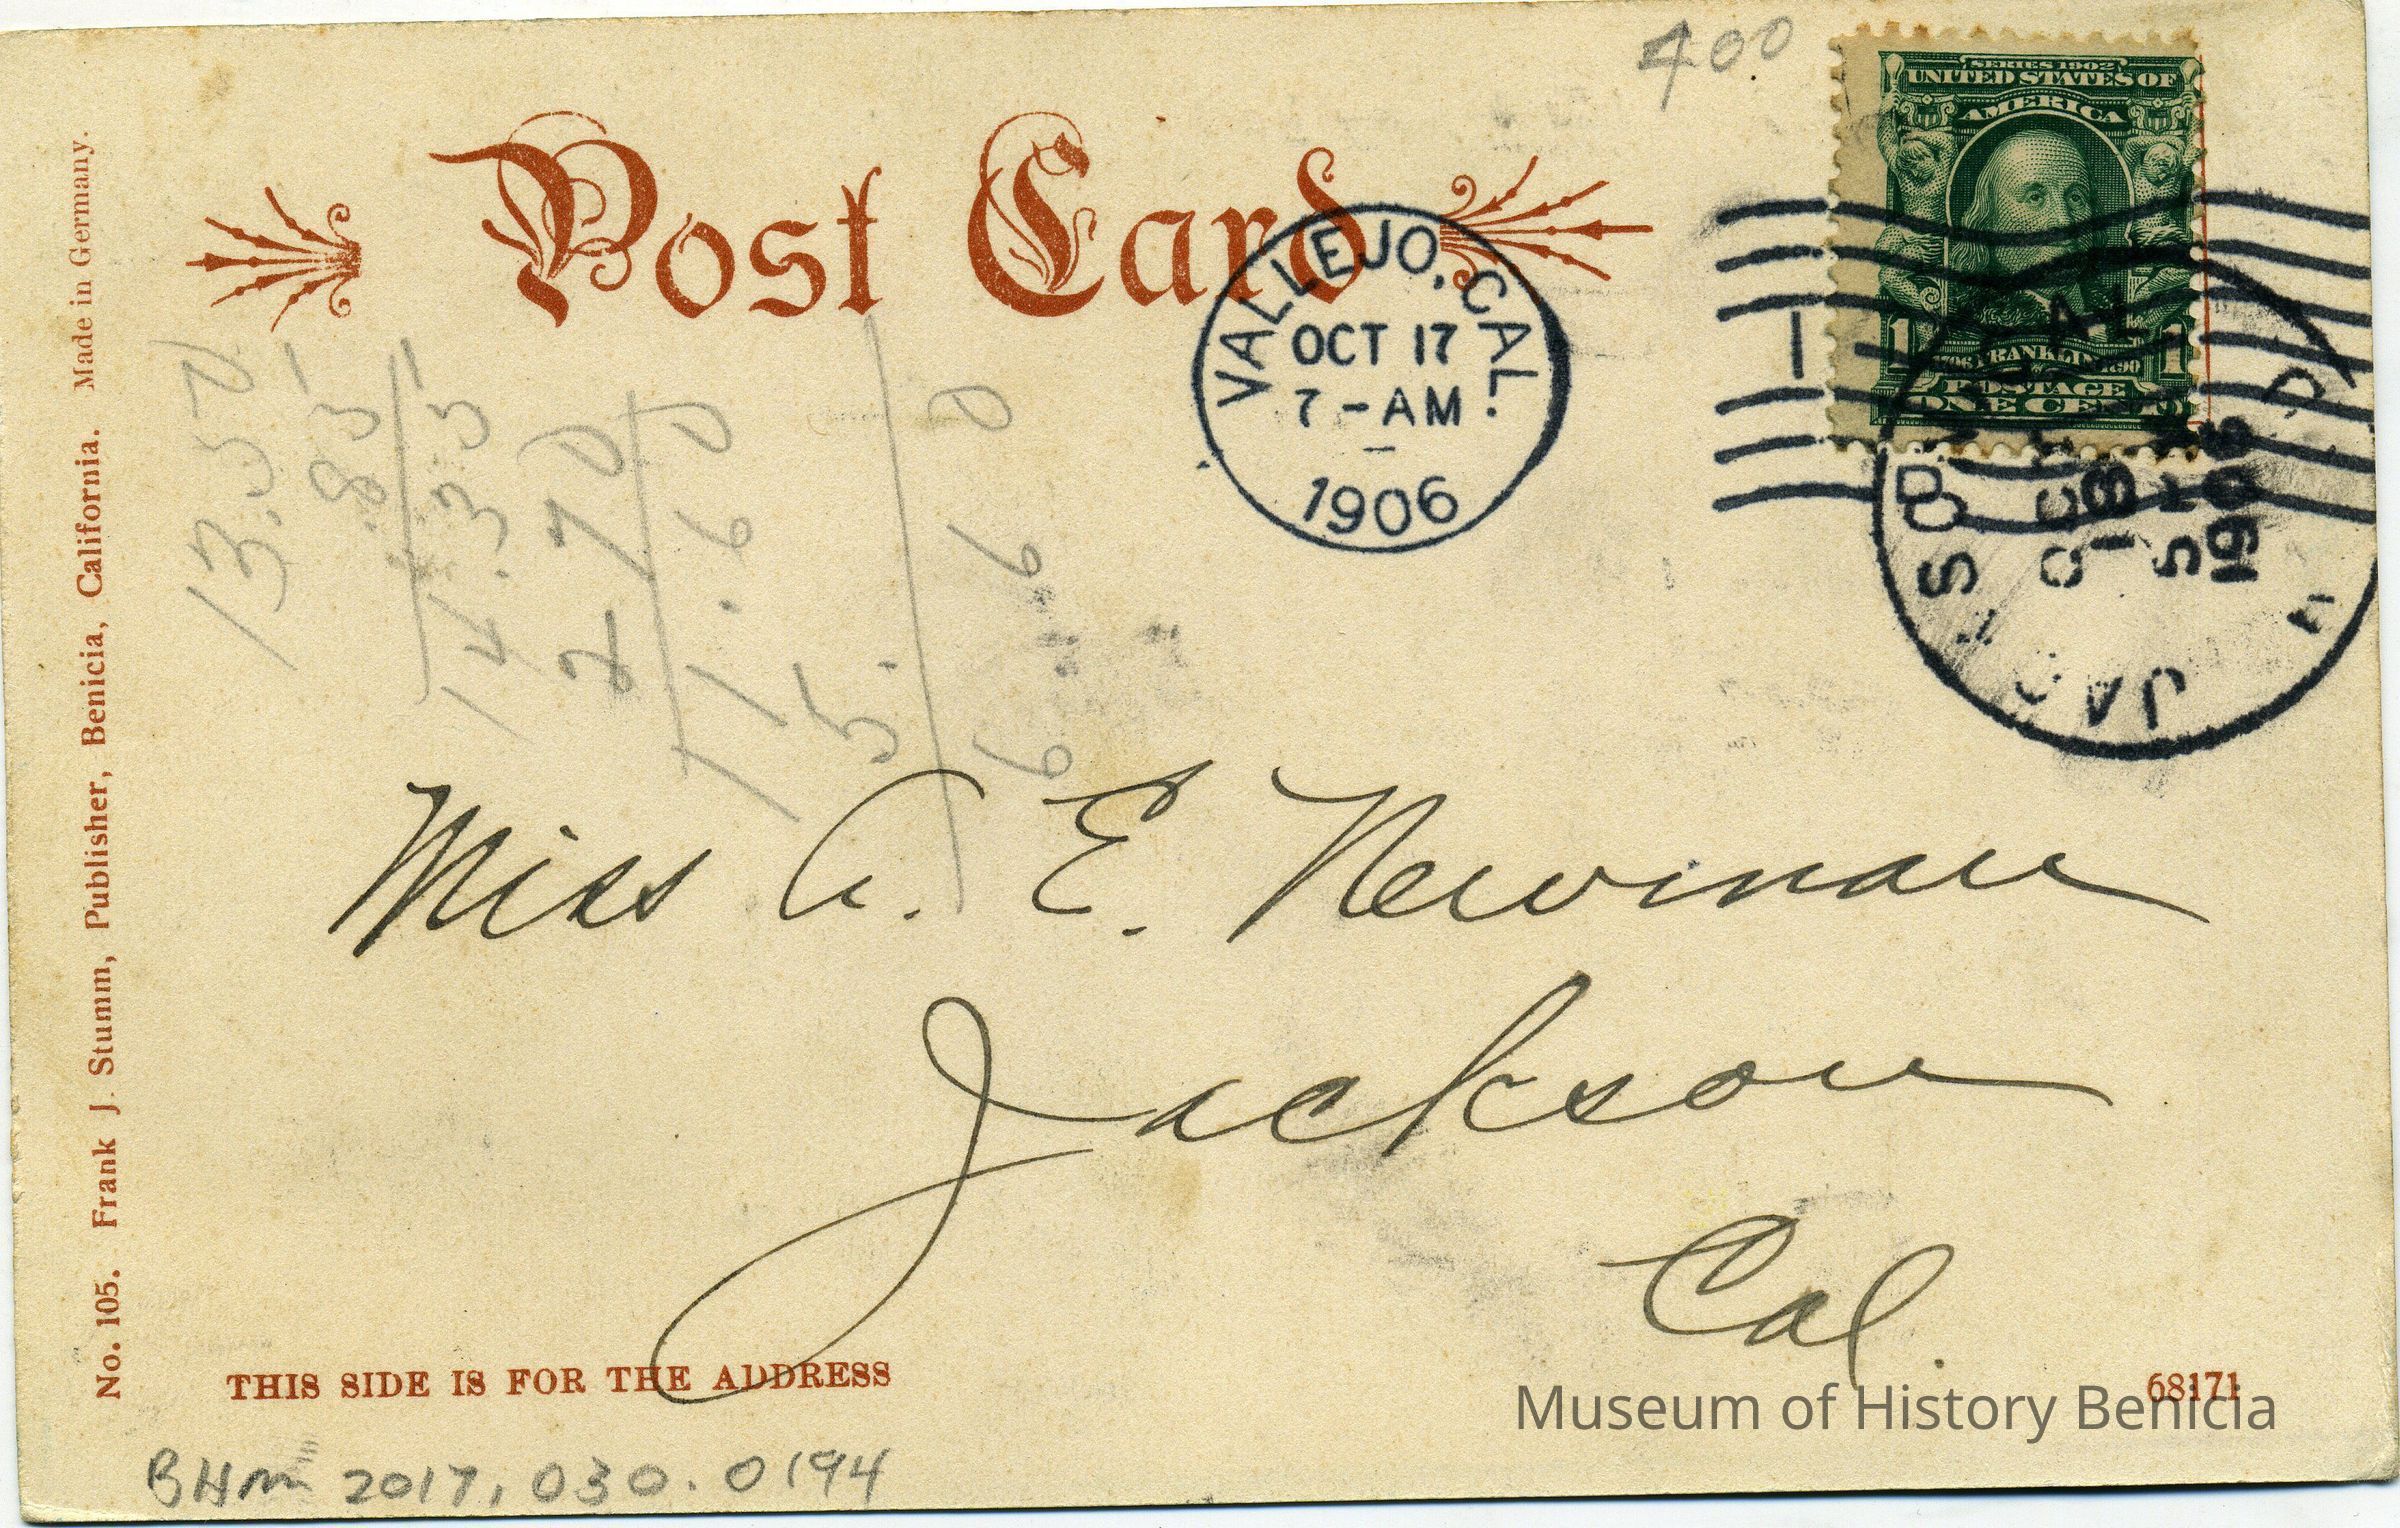 400
SERIES 1902
UNITED STATES OF
AMERICA
Post Card
VALLEJO, CAL.
OCT 17
7-AM
1906
1 FRANKLIN 1
POSTAGE
ONE CENT
JACKSON
CAL
OCT
18
5
1906
13.50
Miss A. E. Newman
Jackson
Cal.
No. 105. Frank J. Stumm, Publisher, Benicia, California. Made in Germany.
THIS SIDE IS FOR THE ADDRESS
68171
Museum of History Benicia
BHm 2017.030.0194